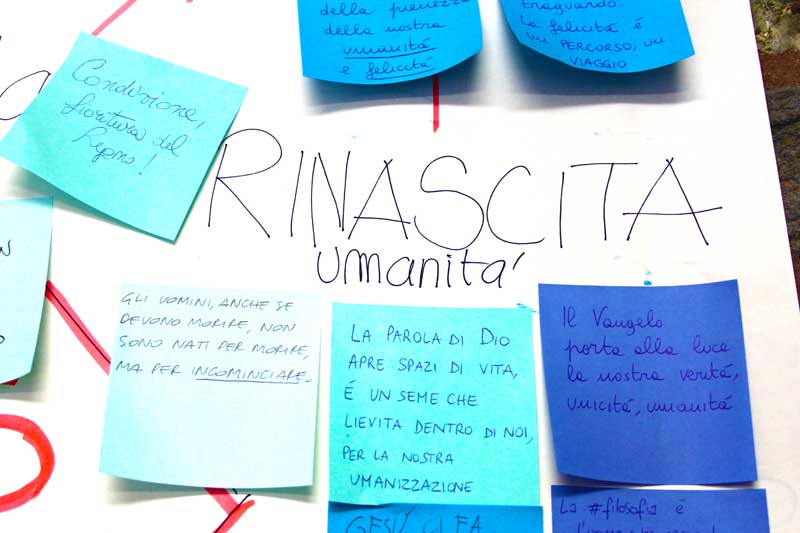 della pienezza
della nostra
umanitá
e felicitá
traguardo.
La felicitá é
un PERCORSO, un
VIAGGIO
Condivisione,
fioritura del
Regno!
RINASCITA
umanita'
GLI UOMINI, ANCHE SE
DEVONO MORIRE, NON
SONO NATI PER MORIRE,
MA PER INCOMINCIARE.
LA PAROLA DI DIO
APRE SPAZI DI VITA,
É UN SEME CHE
LIEVITA DENTRO DI NOI,
PER LA NOSTRA
UMANIZZAZIONE
Il Vangelo
porta alla luce
la nostra veritá,
unicitá, umanitá
GESÙ CI FA
La #filosofia é